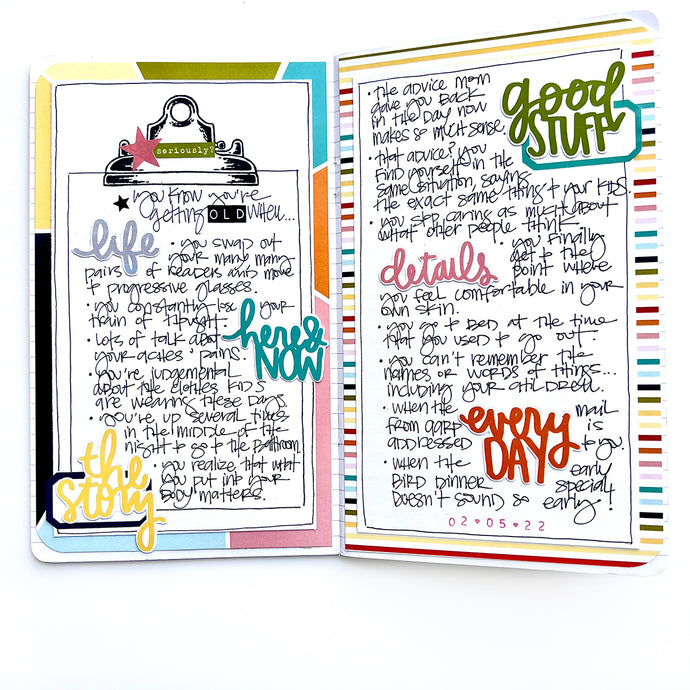 seriously?
you know you're
getting OLD when...
life
• you swap out
your many many
pairs of readers and move
to progressive glasses.
• you constantly lose your
train of thought.
here & NOW
• lots of talk about
your aches & pains.
• you're judgemental
about the clothes kids
are wearing these days
• you're up several times
in the middle of the
night to go to the bathroom.
the story
• you realize that what
you put into your
body matters.
• the advice mom
gave you back
in the day now
makes so much sense
good STUFF
• that advice? you
find yourself in the
same situation, saying
the exact same things to your kids.
• you stop caring as much about
what other people think.
details
• you finally
get to the
point where
you feel comfortable in your
own skin.
• you go to bed at the time
that you used to go out.
• you can't remember the
names or words of things...
including your children.
• when the mail
from aarp is
addressed to you.
every DAY
• when the early
bird dinner special
doesn't sound so early!
02♥05♥22